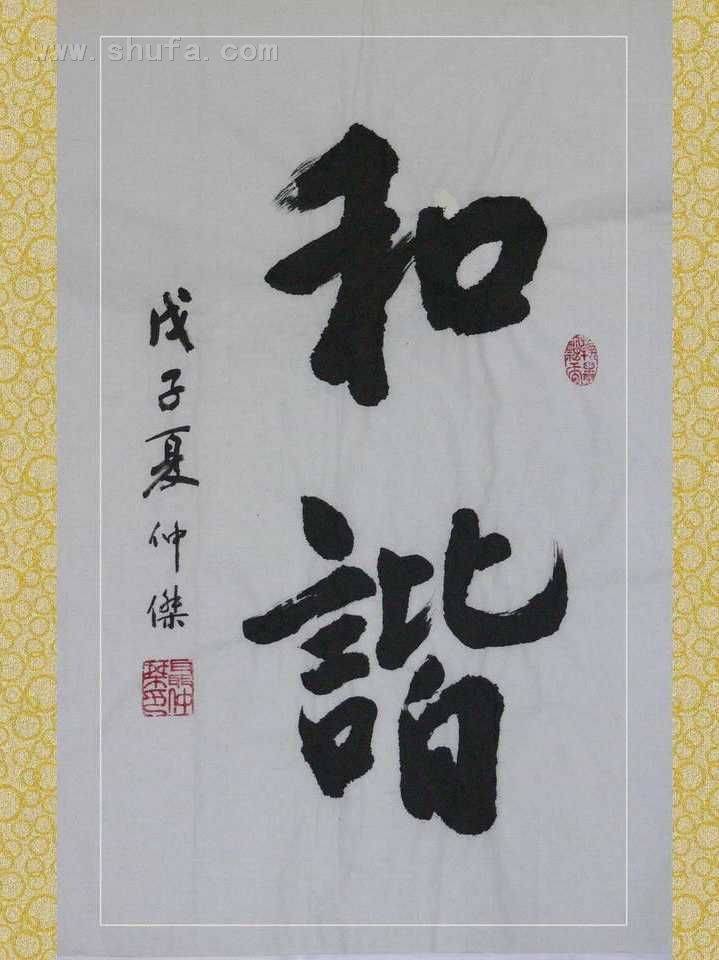 www.shufa.com
和
諧
戊子夏仲傑